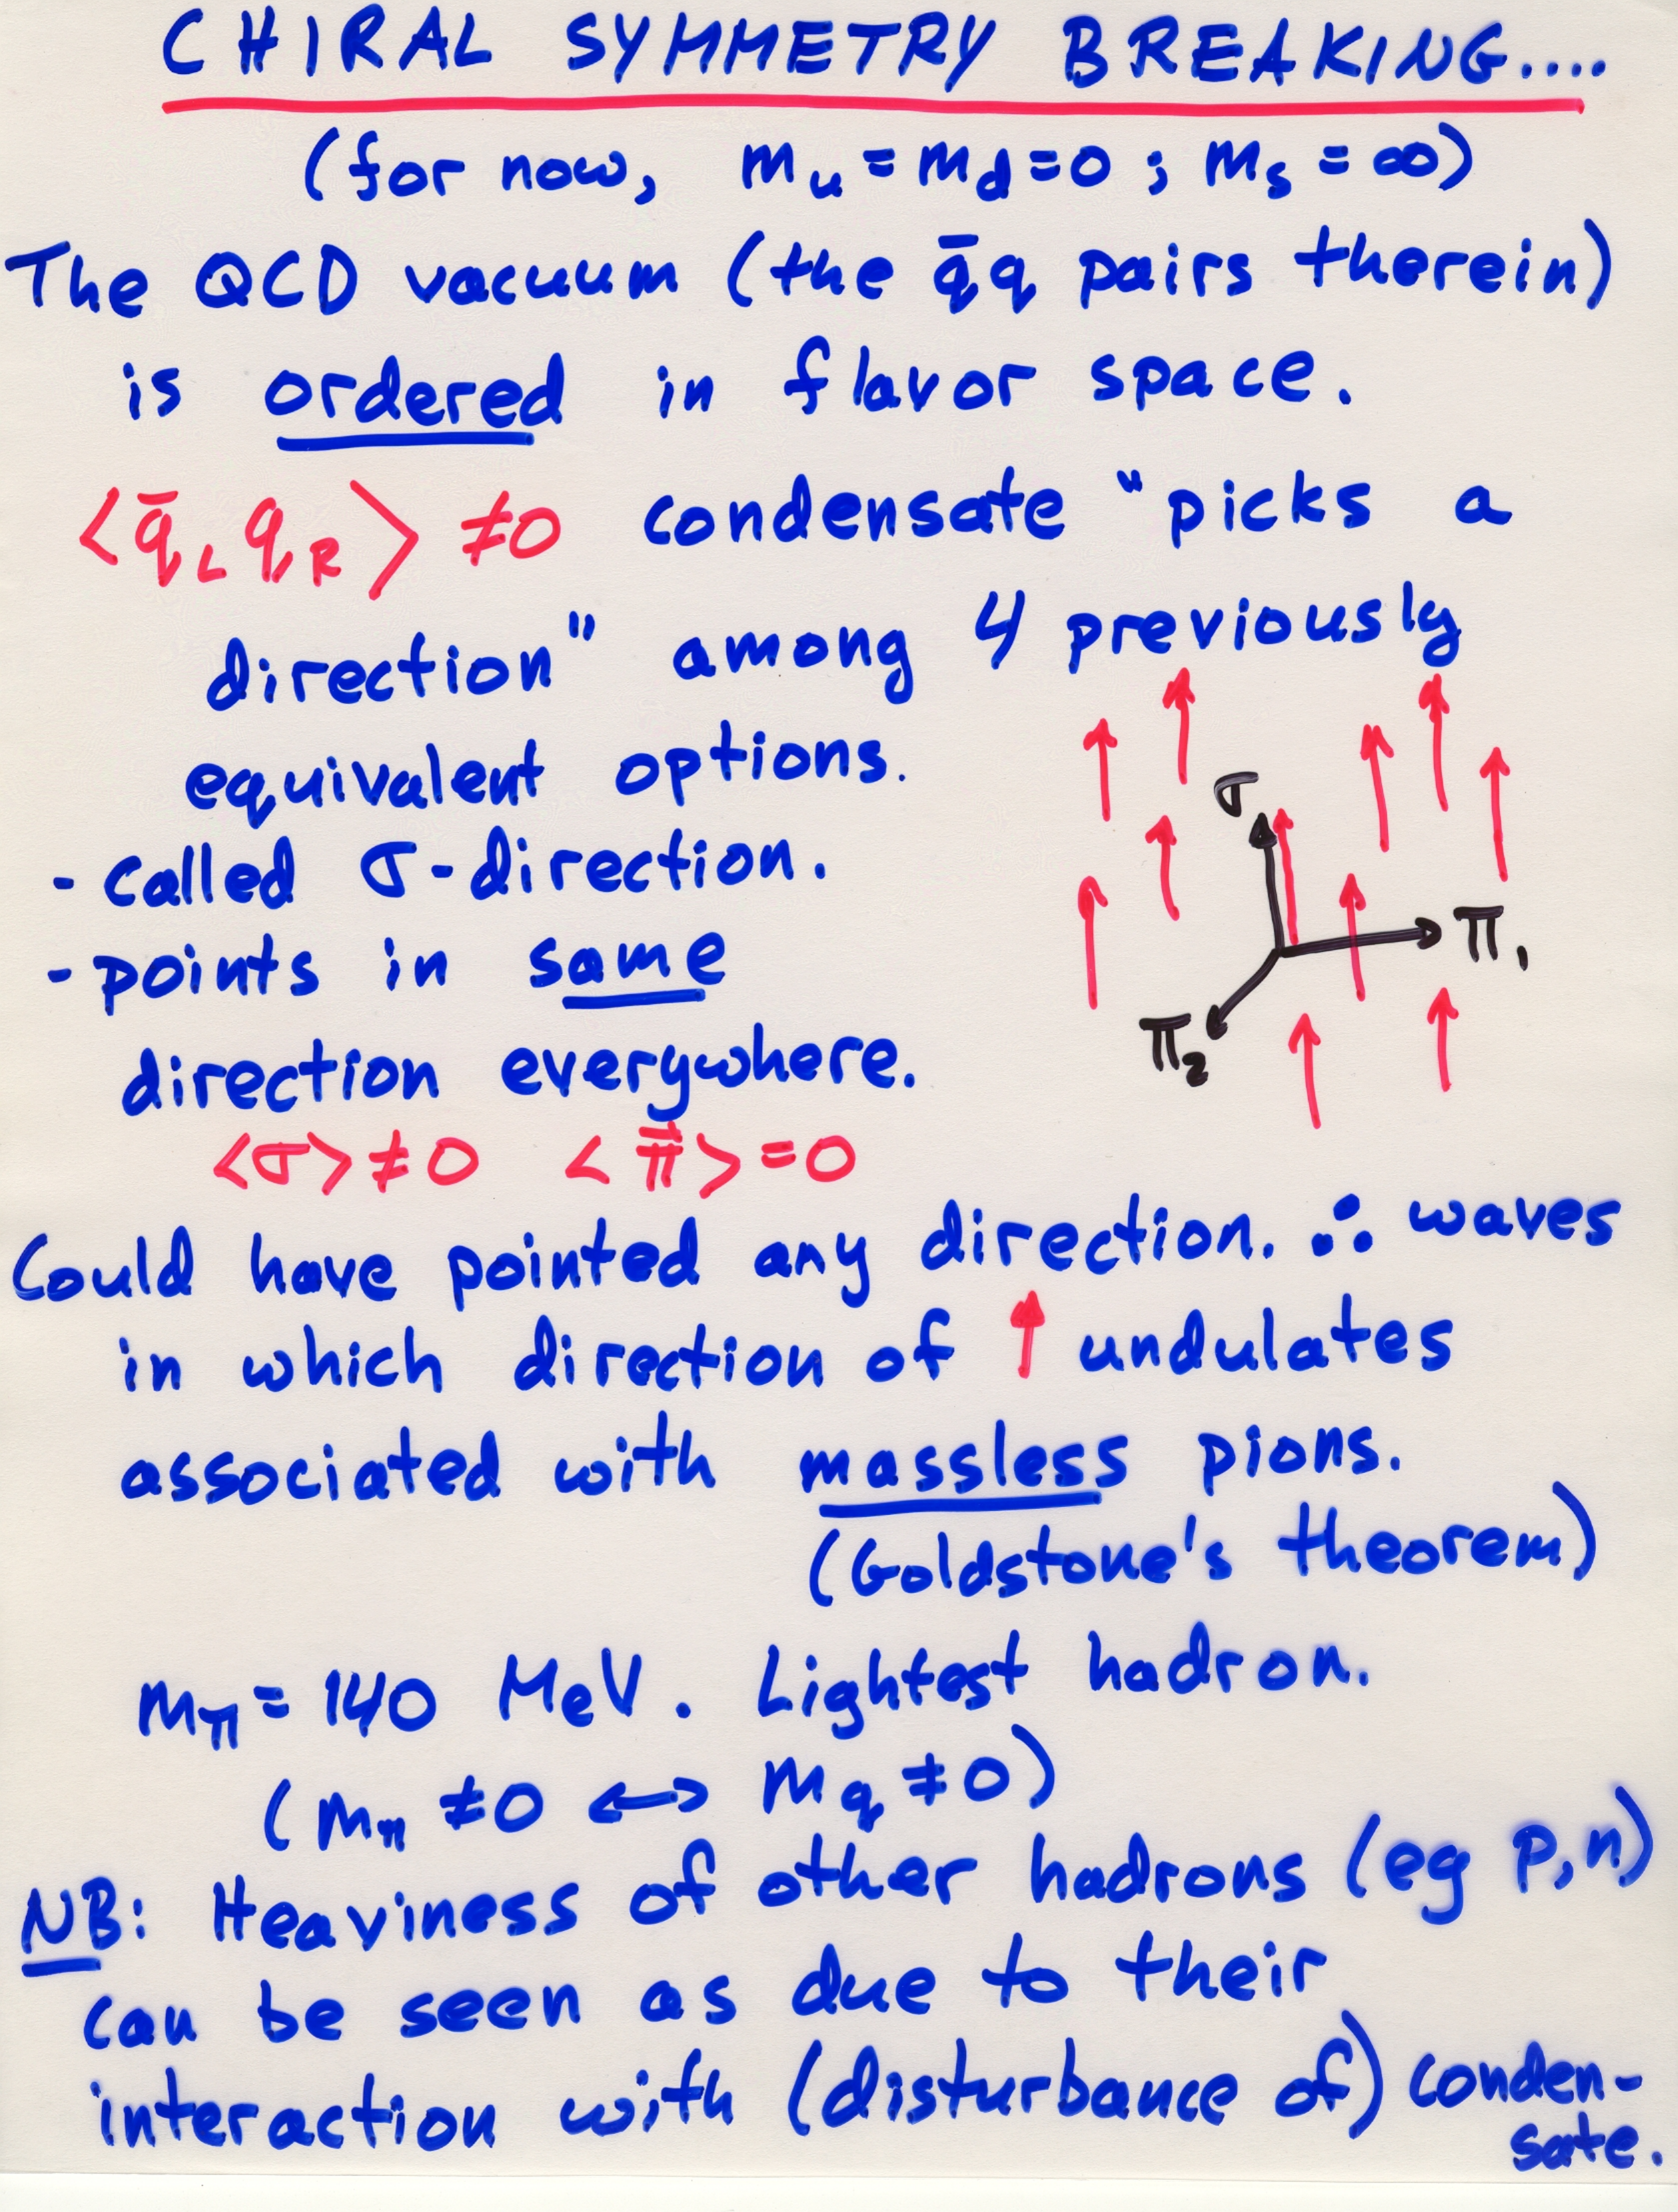 CHIRAL SYMMETRY BREAKING....
(for now, m_u = m_d = 0 ; m_s = ∞)
The QCD vacuum (the q̄q pairs therein)
is ordered in flavor space.
<q̄_L q_R> ≠ 0 condensate "picks a
direction" among 4 previously
equivalent options.
- called σ-direction.
- points in same
direction everywhere.
σ
π₁
π₂
<σ> ≠ 0 <π⃗> = 0
Could have pointed any direction. ∴ waves
in which direction of ↑ undulates
associated with massless pions.
(Goldstone's theorem)
m_π = 140 MeV. Lightest hadron.
(m_π ≠ 0 ↔ m_q ≠ 0)
NB: Heaviness of other hadrons (eg p,n)
can be seen as due to their
interaction with (disturbance of) conden-
sate.